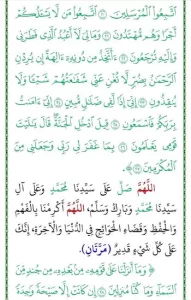 ٱتَّبِعُواْ ٱلْمُرْسَلِينَ ﴿٢٠﴾ ٱتَّبِعُواْ مَن لَّا يَسْـَٔلُكُمْ
أَجْرًا وَهُم مُّهْتَدُونَ ﴿٢١﴾ وَمَالِىَ لَآ أَعْبُدُ ٱلَّذِى فَطَرَنِى
وَإِلَيْهِ تُرْجَعُونَ ﴿٢٢﴾ ءَأَتَّخِذُ مِن دُونِهِۦٓ ءَالِهَةً إِن يُرِدْنِ
ٱلرَّحْمَٰنُ بِضُرٍّ لَّا تُغْنِ عَنِّى شَفَٰعَتُهُمْ شَيْـًٔا وَلَا
يُنقِذُونِ ﴿٢٣﴾ إِنِّىٓ إِذًا لَّفِى ضَلَٰلٍ مُّبِينٍ ﴿٢٤﴾ إِنِّىٓ ءَامَنتُ
بِرَبِّكُمْ فَٱسْمَعُونِ ﴿٢٥﴾ قِيلَ ٱدْخُلِ ٱلْجَنَّةَ قَالَ يَٰلَيْتَ
قَوْمِى يَعْلَمُونَ ﴿٢٦﴾ بِمَا غَفَرَ لِى رَبِّى وَجَعَلَنِى مِنَ
ٱلْمُكْرَمِينَ ﴿٢٧﴾
اللَّهُمَّ صَلِّ عَلَى سَيِّدِنَا مُحَمَّدٍ وَعَلَى آلِ
سَيِّدِنَا مُحَمَّدٍ وَبَارِكْ وَسَلِّمْ، اللَّهُمَّ أَكْرِمْنَا بِالْفَهْمِ
وَالْحِفْظِ وَقَضَاءِ الْحَوَائِجِ فِي الدُّنْيَا وَالْآخِرَةِ، إِنَّكَ
عَلَى كُلِّ شَيْءٍ قَدِيرٌ (مَرَّتَانِ).
﴿ وَمَآ أَنزَلْنَا عَلَىٰ قَوْمِهِۦ مِنۢ بَعْدِهِۦ مِن جُندٍ مِّنَ
ٱلسَّمَآءِ وَمَا كُنَّا مُنزِلِينَ ﴿٢٨﴾ إِن كَانَتْ إِلَّا صَيْحَةً وَٰحِدَةً